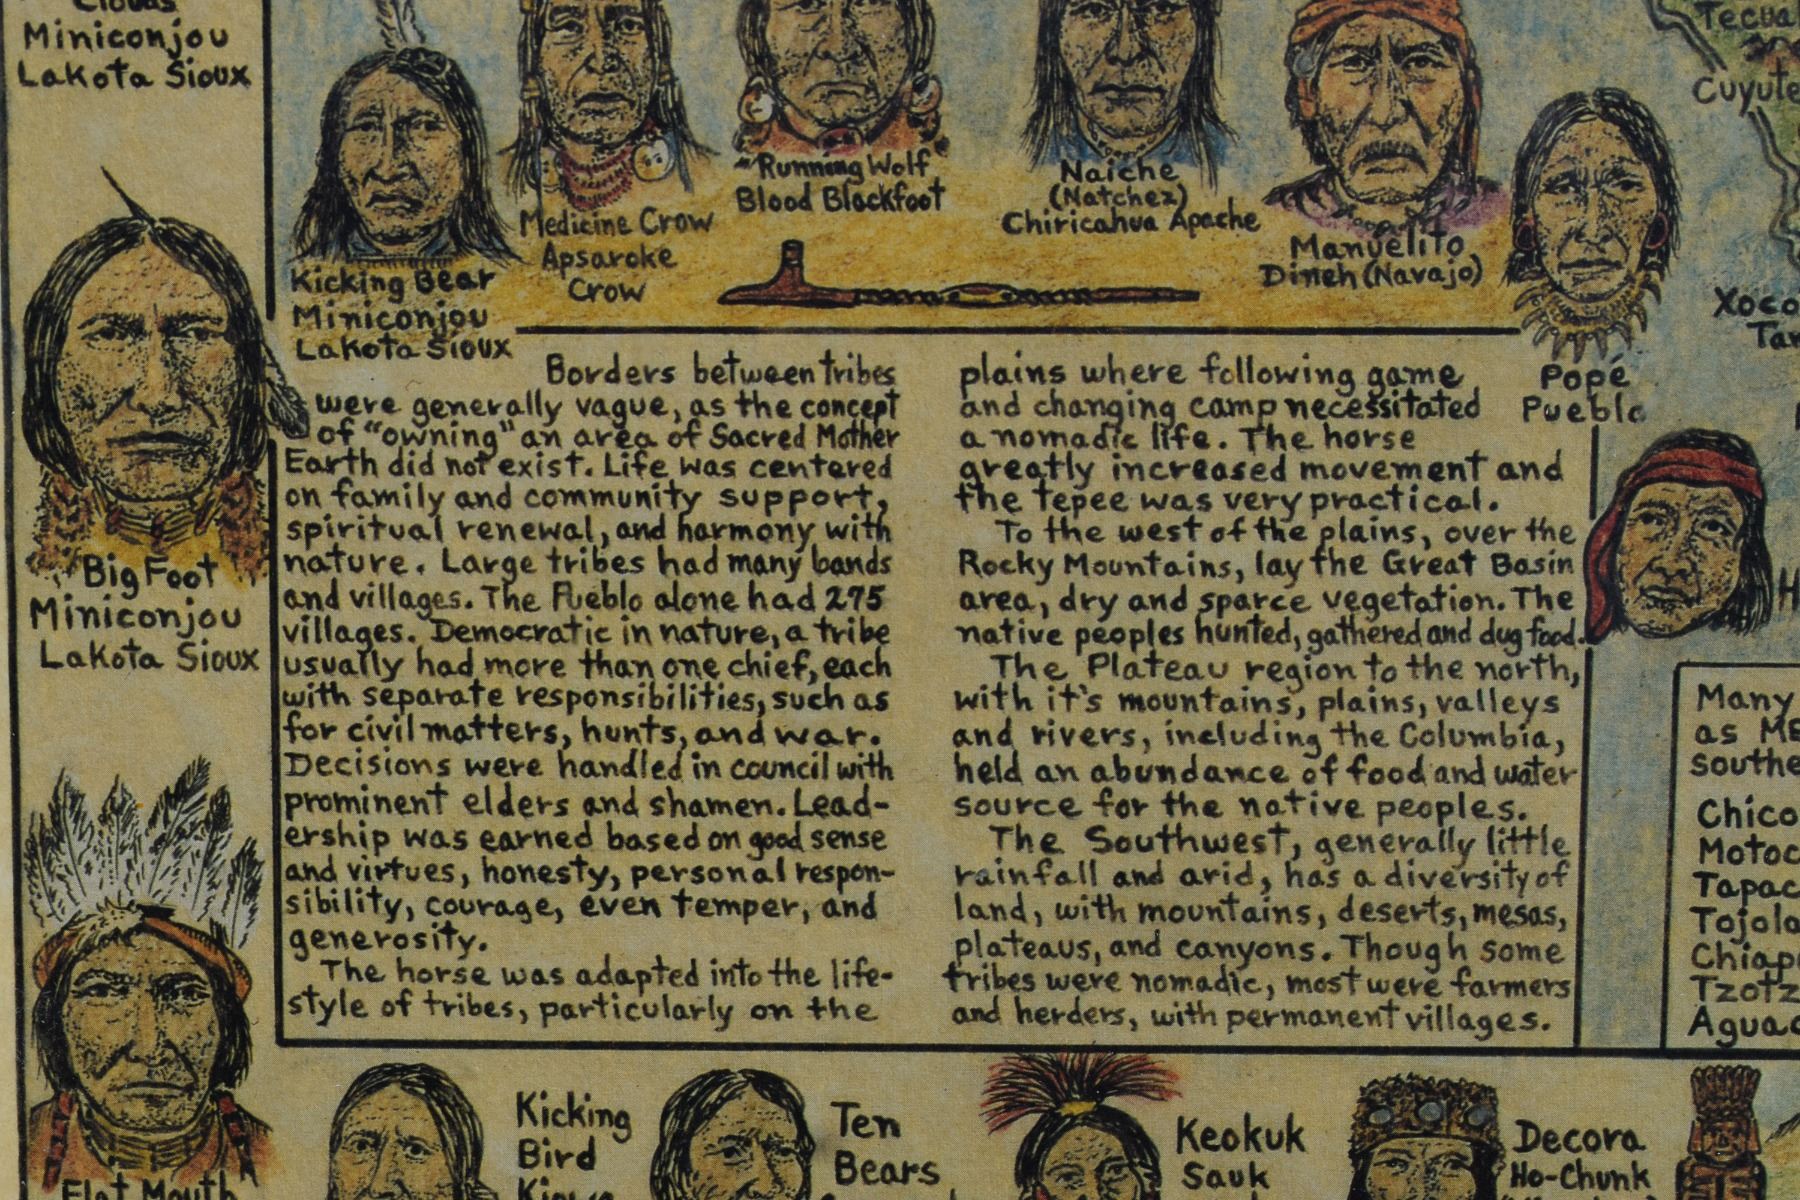 Clouds
Miniconjou
Lakota Sioux
Kicking Bear
Miniconjou
Lakota Sioux
Medicine Crow
Apsaroke
Crow
"Running Wolf"
Blood Blackfoot
Naiche
(Natchez)
Chiricahua Apache
Manuelito
Dineh (Navajo)
Popé
Pueblo
Big Foot
Miniconjou
Lakota Sioux
Flat Mouth
Borders between tribes
were generally vague, as the concept
of "owning" an area of Sacred Mother
Earth did not exist. Life was centered
on family and community support,
spiritual renewal, and harmony with
nature. Large tribes had many bands
and villages. The Pueblo alone had 275
villages. Democratic in nature, a tribe
usually had more than one chief, each
with separate responsibilities, such as
for civil matters, hunts, and war.
Decisions were handled in council with
prominent elders and shamen. Lead-
ership was earned based on good sense
and virtues, honesty, personal respon-
sibility, courage, even temper, and
generosity.
The horse was adapted into the life-
style of tribes, particularly on the
plains where following game
and changing camp necessitated
a nomadic life. The horse
greatly increased movement and
the tepee was very practical.
To the west of the plains, over the
Rocky Mountains, lay the Great Basin
area, dry and sparce vegetation. The
native peoples hunted, gathered and dug food.
The Plateau region to the north,
with it's mountains, plains, valleys
and rivers, including the Columbia,
held an abundance of food and water
source for the native peoples.
The Southwest, generally little
rainfall and arid, has a diversity of
land, with mountains, deserts, mesas,
plateaus, and canyons. Though some
tribes were nomadic, most were farmers
and herders, with permanent villages.
Tecua
Cuyute
Xoco
Tar
H
Many
as ME
southe
Chico
Motoc
Tapac
Tojola
Chiap
Tzotz
Aguac
Kicking
Bird
Kiowa
Ten
Bears
Keokuk
Sauk
Decora
Ho-Chunk